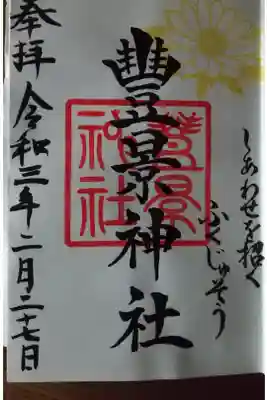 しあわせを招く
ふくじゅそう
豐景神社
豊景
神社
奉拝 令和三年二月二十七日